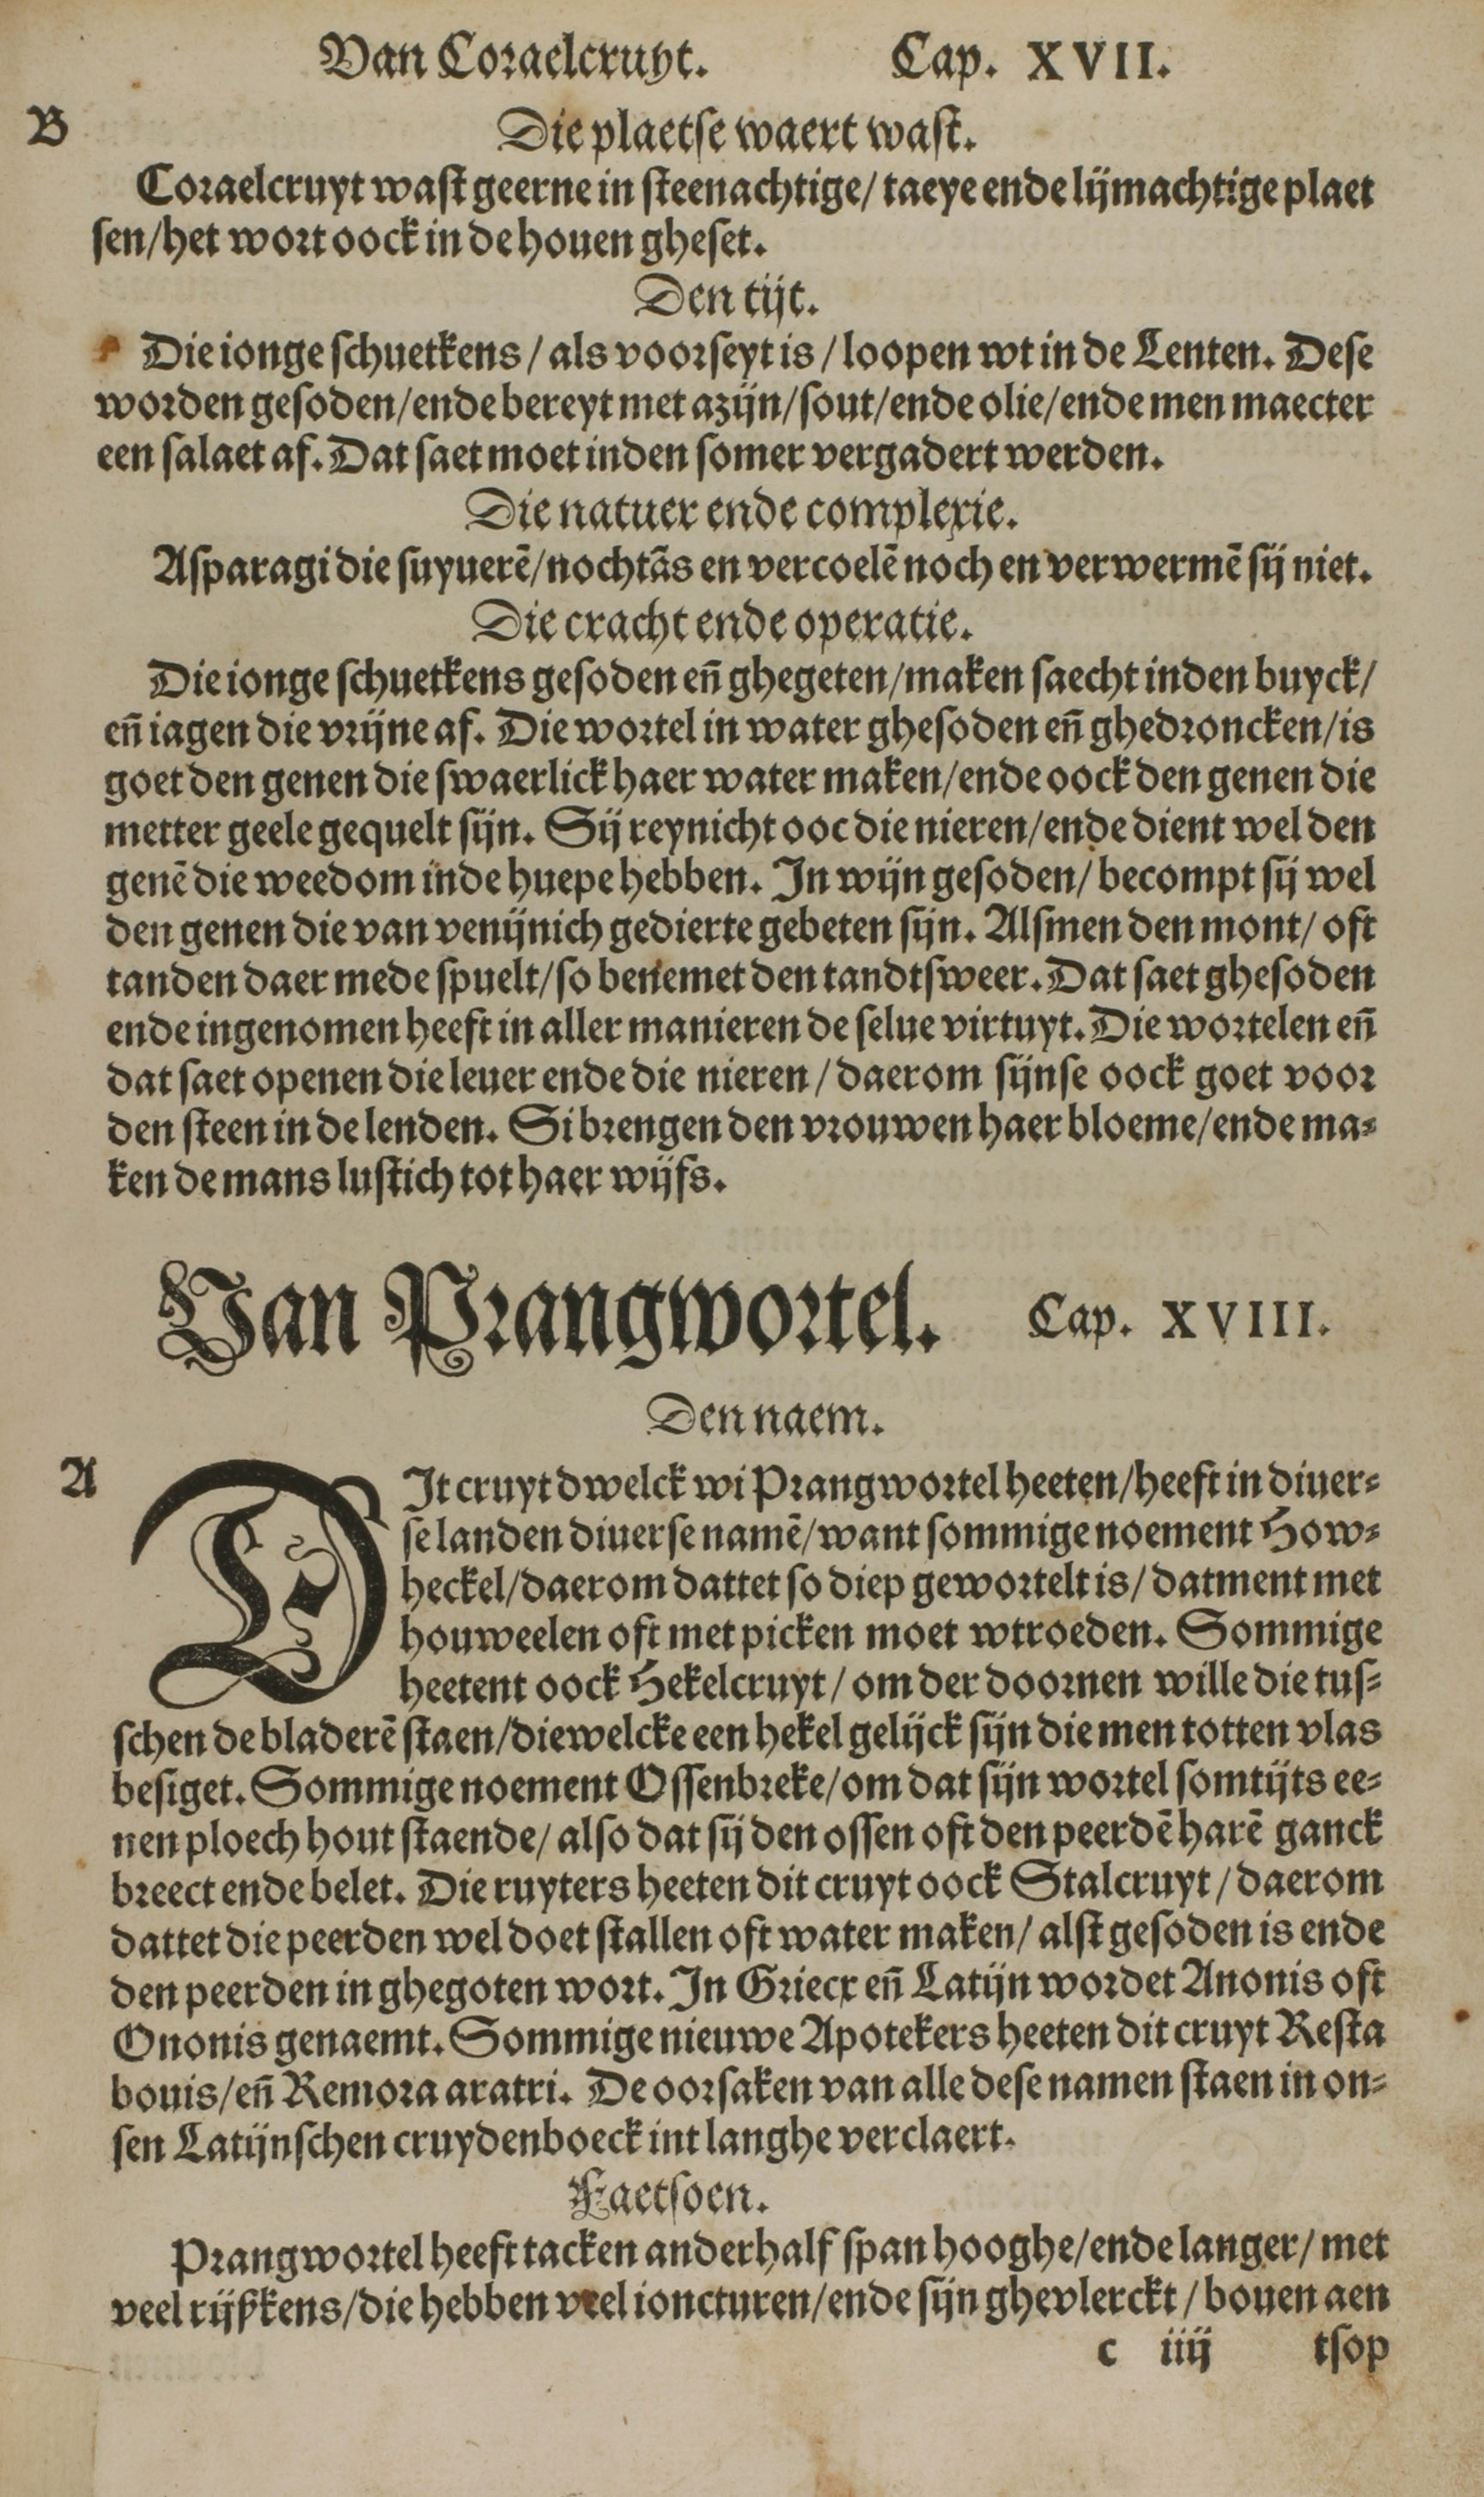 Van Coraelcruyt. Cap. XVII.
B
Die plaetse waert wast.
Coraelcruyt wast geerne in steenachtige/ taeye ende lijmachtige plaet
sen/het wort oock in de houen gheset.
Den tijt.
Die ionge schuetkens/ als voorseyt is/ loopen wt in de Lenten. Dese
worden gesoden/ende bereyt met azijn/sout/ende olie/ende men maecter
een salaet af. Dat saet moet inden somer vergadert werden.
Die natuer ende complexie.
Asparagi die suyuerē/nochtãs en vercoelē noch en verwermē sij niet.
Die cracht ende operatie.
Die ionge schuetkens gesoden eñ ghegeten/maken saecht inden buyck/
eñ iagen die vrijne af. Die wortel in water ghesoden eñ ghedroncken/is
goet den genen die swaerlick haer water maken/ende oock den genen die
metter geele gequelt sijn. Sij reynicht ooc die nieren/ende dient wel den
genē die weedom inde huepe hebben. In wijn gesoden/ becompt sij wel
den genen die van venijnich gedierte gebeten sijn. Alsmen den mont/ oft
tanden daer mede spuelt/so benemet den tandtsweer. Dat saet ghesoden
ende ingenomen heeft in aller manieren de selue virtuyt. Die wortelen eñ
dat saet openen die leuer ende die nieren/ daerom sijnse oock goet voor
den steen in de lenden. Si brengen den vrouwen haer bloeme/ende ma-
ken de mans lustich tot haer wijfs.
Van Prangwortel. Cap. XVIII.
Den naem.
A
DIt cruyt dwelck wi Prangwortel heeten/heeft in diuer-
se landen diuerse namē/want sommige noement How-
heckel/daerom dattet so diep gewortelt is/ datment met
houweelen oft met picken moet wtroeden. Sommige
heetent oock Hekelcruyt/ om der doornen wille die tus-
schen de bladerē staen/diewelcke een hekel gelijck sijn die men totten vlas
besiget. Sommige noement Ossenbreke/om dat sijn wortel somtijts ee-
nen ploech hout staende/ also dat sij den ossen oft den peerdē harē ganck
breect ende belet. Die ruyters heeten dit cruyt oock Stalcruyt/ daerom
dattet die peerden wel doet stallen oft water maken/ alst gesoden is ende
den peerden in ghegoten wort. In Griecx eñ Latijn wordet Anonis oft
Ononis genaemt. Sommige nieuwe Apotekers heeten dit cruyt Resta
bouis/eñ Remora aratri. De oorsaken van alle dese namen staen in on-
sen Latijnschen cruydenboeck int langhe verclaert.
Faetsoen.
Prangwortel heeft tacken anderhalf span hooghe/ende langer/ met
veel rijskens/die hebben veel ioncturen/ende sijn ghevlerckt/ bouen aen
c iiij tsop